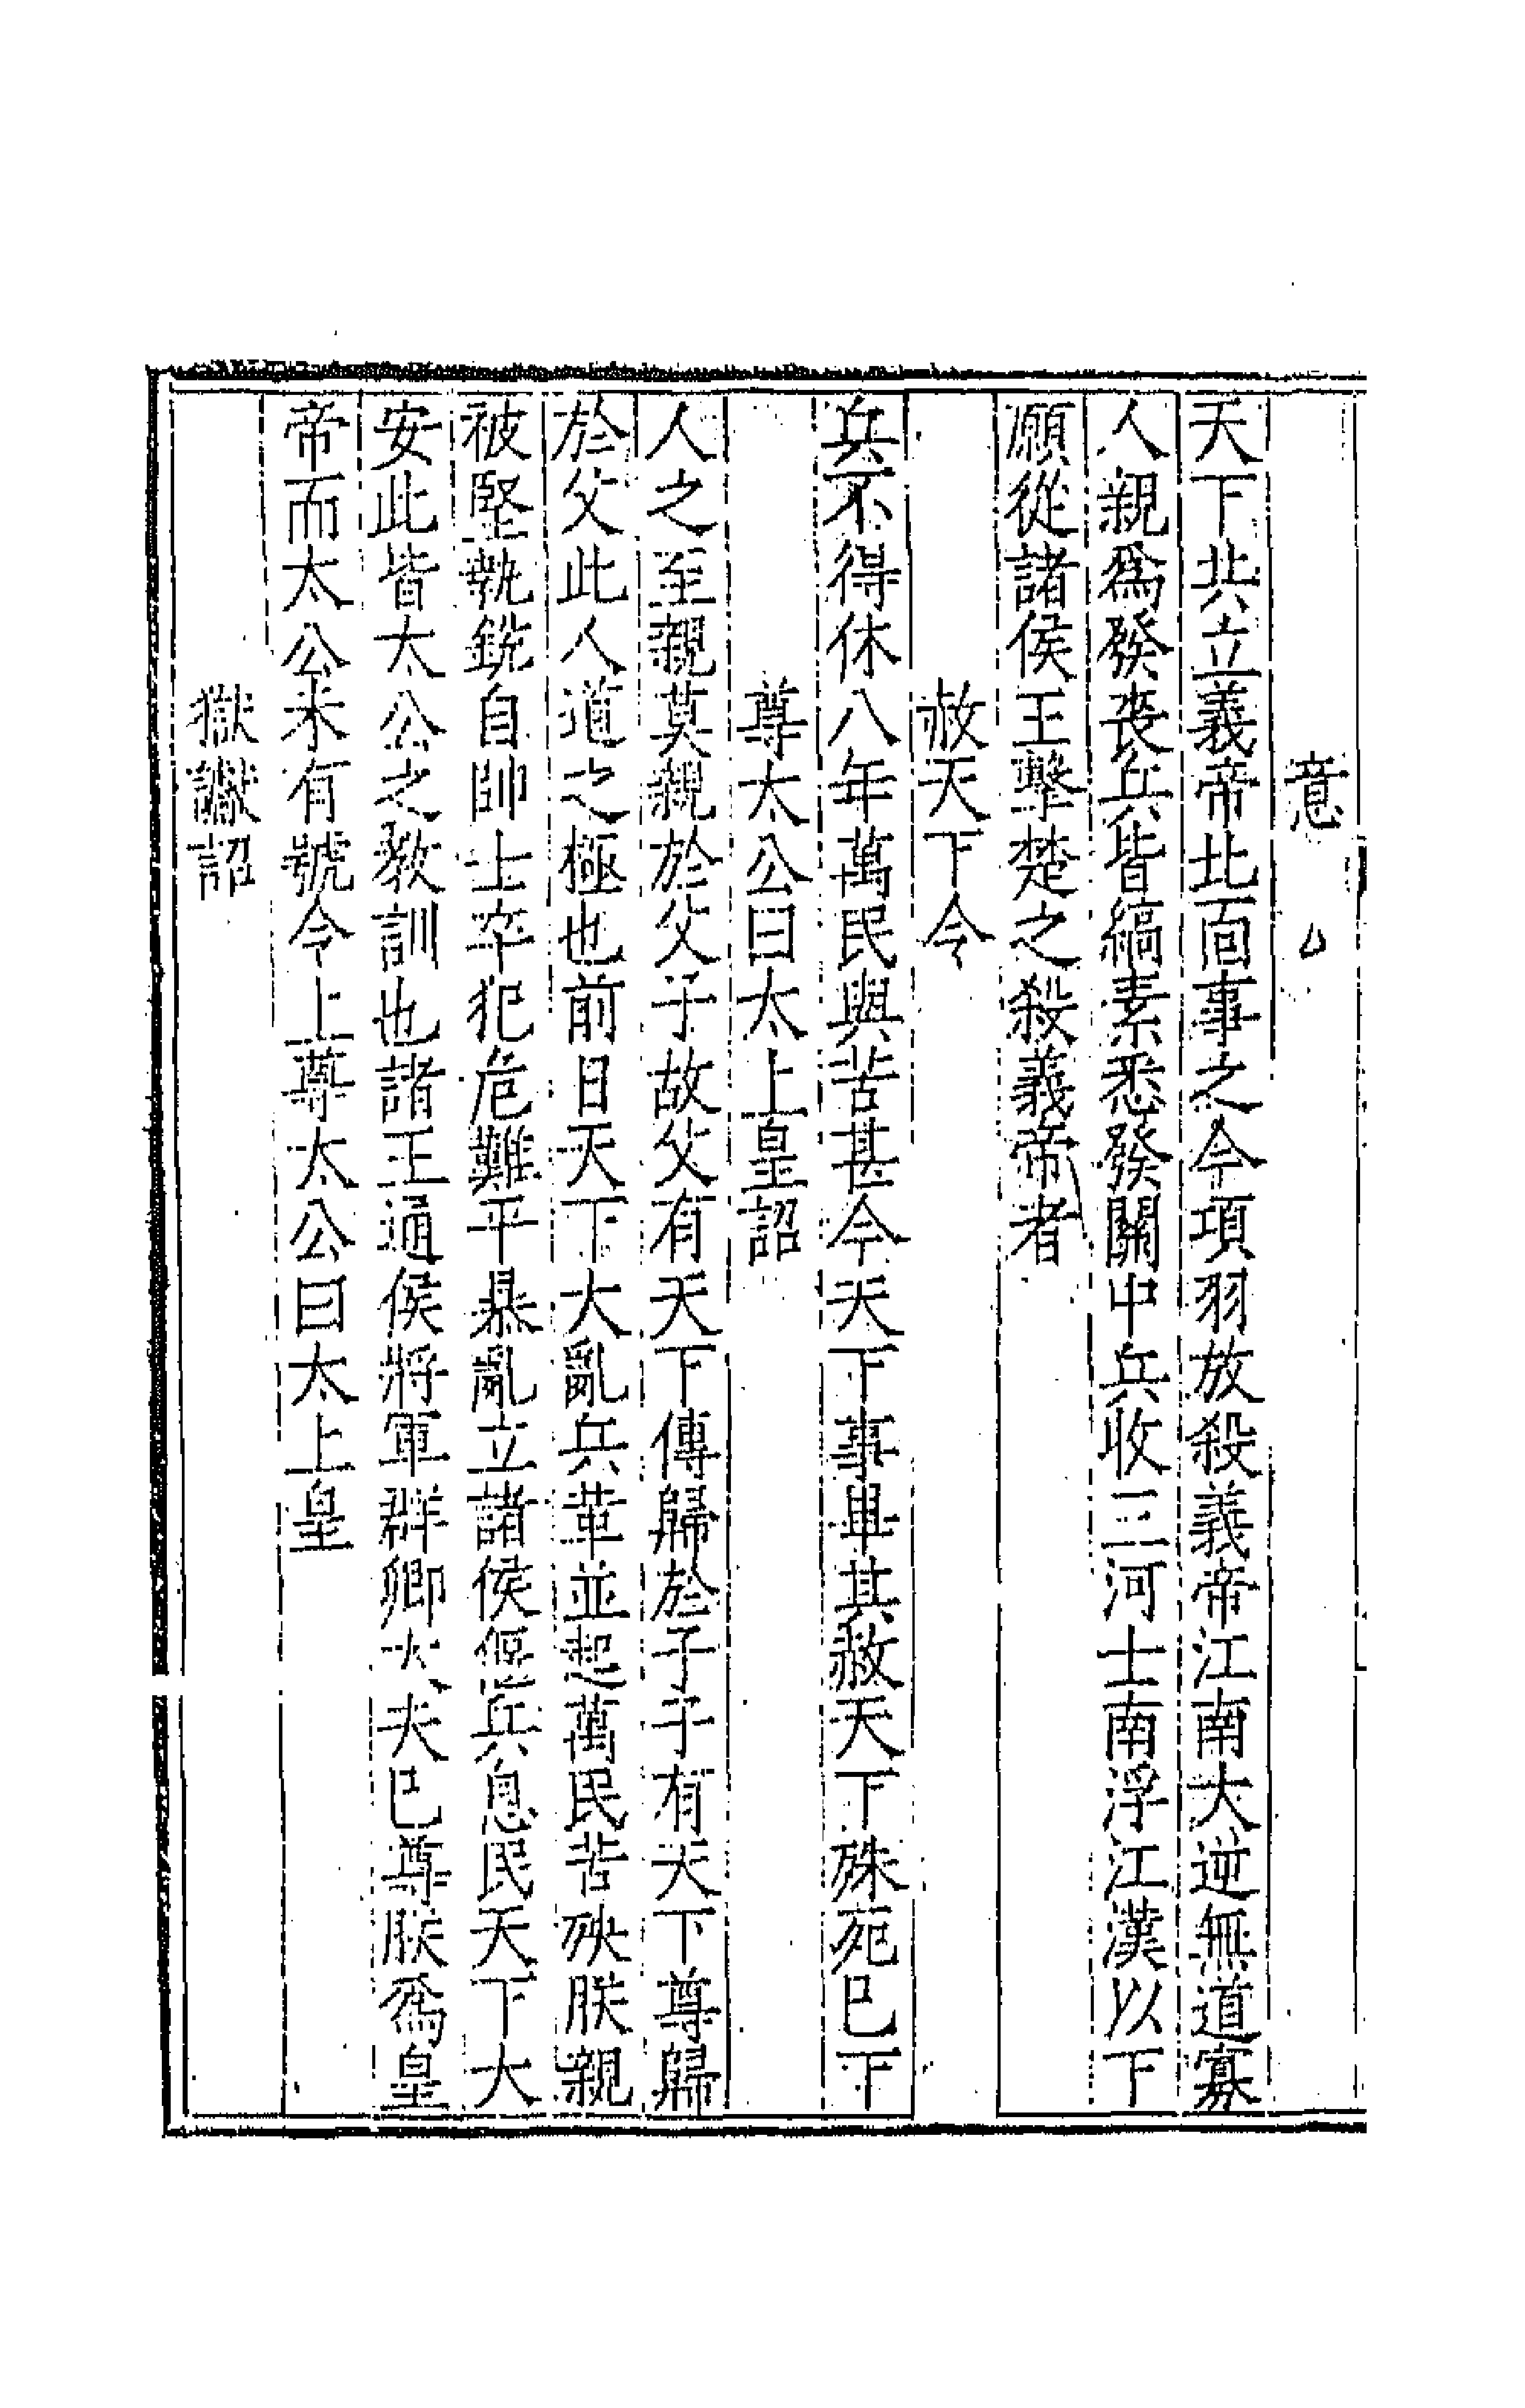 意
天下共立義帝北面事之今項羽放殺義帝江南大逆無道寡
人親爲發喪兵皆縞素悉發關中兵收三河士南浮江漢以下
願從諸侯王擊楚之殺義帝者
赦天下令
兵不得休八年萬民與苦甚今天下事畢其赦天下殊死已下
尊太公曰太上皇詔
人之至親莫親於父子故父有天下傳歸於子子有天下尊歸
於父此人道之極也前日天下大亂兵革並起萬民苦殃朕親
被堅執銳自帥士卒犯危難平暴亂立諸侯偃兵息民天下大
安此皆太公之教訓也諸王通侯將軍群卿大夫已尊朕爲皇
帝而太公未有號今上尊太公曰太上皇
獄讞詔